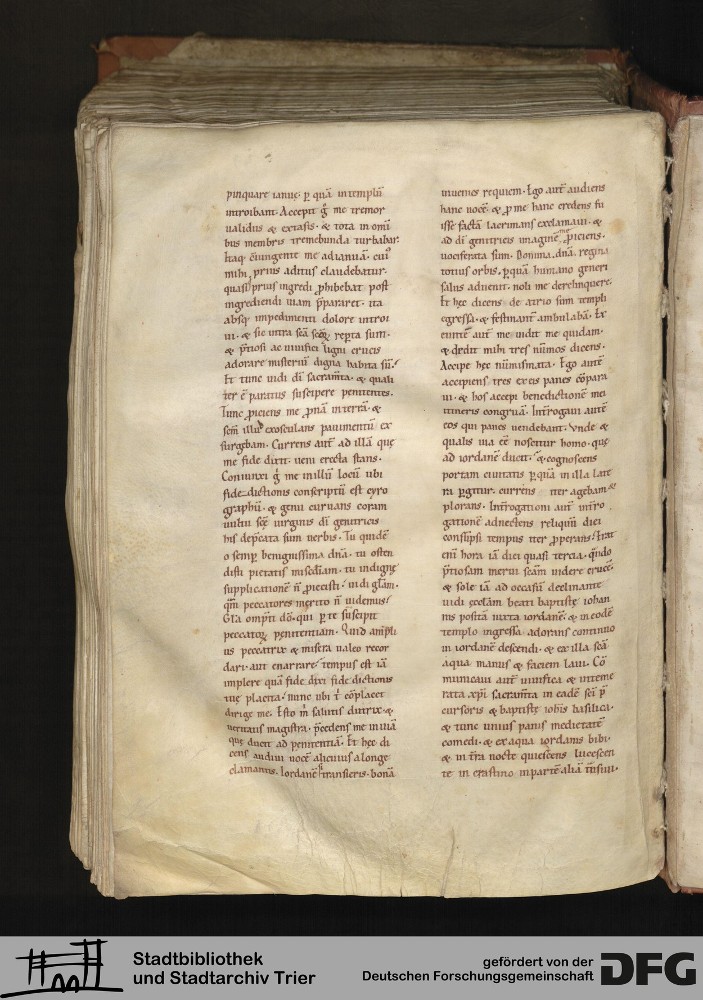 pinquare ianuę. p̱ quā in templū
introibant. Accepit g̊ me tremor
ualidus & extasis. & tota in omī
bus membris tremebunda turbabar.
Itaq; c̄iungente me ad ianuā. cui᾽
mihi prius aditus claudebatur.
quasi prius ingredi p̱hibebat post
ingrediendi uiam p̄pararet. ita
absq; impedimenti dolore introi
ui. & sic intra scā scōꝝ rep̱ta sum.
& p̄tiosi ac uiuifici ligni crucis
adorare misteriū digna habita sū.
Et tunc uidi dī sacram̄ta. & quali
ter ē paratus suscipere penitentes.
Tunc p̱iciens me p̱nā in terrā. &
scm̄ illud exosculans pauimentū ex
surgebam. Currens aut̄ ad illā quę
me fide dixit. ueni erecta stans.
Coniunxi g̊ me in illū locū ubi
fide dictionis conscriptū est cyro
graphū. & genu curuans coram
uultu scę uirginis dī genitricis
his dep̄cata sum uerbis. Tu quidē
o semp̱ benignissima dn̄a. tu osten
disti pietatis misc̄diam. tu indignę
supplicationē n̄ p̱iecisti. uidi gl̄am.
qm̄ peccatores merito n̄ uidemus.
Gl̄a omp̄ti dō. qui p̱ te suscipit
peccatoꝝ penitentiam. Quid ampli
us peccatrix & misera ualeo recor
dari. aut enarrare. tempus est iā
implere quā fide dixi fide dictionis
tuę placita. nunc ubi t̄ cōplacet
dirige me. Esto m̄ salutis dutrix. &
ueritatis magistra. p̄cedens me in uiā
quę ducit ad penitentiā. Et hęc di
cens audiui uocē alicuius a longe
clamantis. Iordanē si transieris. bonā
inuenies requiem. Ego aut̄ audiens
hanc uocē. & p̱ me hanc credens fu
isse factā lacrimans exclamaui. &
ad dī genitricis imaginē me p̱iciens.
uociferata sum. Domina. dn̄a. regina
totius orbis. p̱ quā humano generi
salus aduenit. noli me derelinquere.
Et hęc dicens de atrio sum templi
egressa. & festinant̄ ambulabā. Ex
euntē aut̄ me uidit me quidam.
& dedit mihi tres nūmos dicens.
Accipe hęc nūmismata. Ego aut̄
accipiens tres ex eis panes cōpara
ui. & hos accepi benedictionē mei
itineris congruā. Int̄rogaui autē
eos qui panes uendebant. Vnde &
qualis uia eē noscitur homo. quę
ad iordanē ducit. & cognoscens
portam ciuitatis p̱ quā in illa late
ri p̱gitur. currens iter agebam &
plorans. Int̄rogationi aut̄ intro
gationē adnectens reliquū diei
consūpsi tempus iter p̱perans. Erat
eni̅ hora iā diei quasi tercia. qn̄do
p̄tiosam merui scām uidere crucē.
& sole iā ad occasū declinante
uidi ecc̄lam beati baptistę iohan
nis positā iuxta iordanē. & in eodē
templo ingressa adorans continuo
in iordanē descendi. & ex illa scā
aqua manus & faciem laui. Cō
municaui aut̄ uiuifica & inteme
rata xp̄i sacram̄ta in eadē sc̄i p̄
cursoris & baptistę ioh̄is basilica.
& tunc unius panis medietatē
comedi. & ex aqua iordanis bibi.
& in t̄ra nocte quiescens lucescen
te in crastino in partē aliā tn̄siui.
Stadtbibliothek
und Stadtarchiv Trier
gefördert von der
Deutschen Forschungsgemeinschaft
DFG